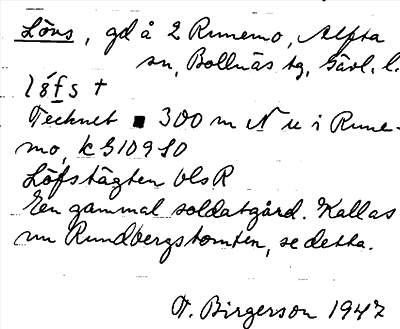 Lövs, gd å 2 Runemo, Alfta
sn, Bollnäs tg, Gävl. l.
löfs +
Tecknet ■ 300 m N u i Rune-
mo, k G109 SO
Löfstägten OlsR
En gammal soldatgård. Kallas
nu Rundbergstomten, se detta.
V. Birgerson 1947